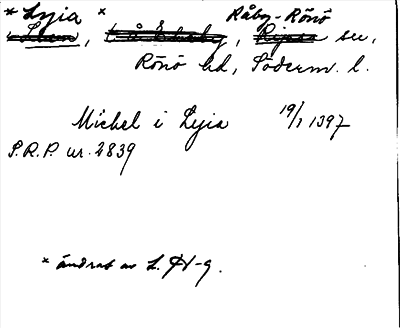 * Lyia * Råby-Rönö
, , Ripsa sn,
Rönö hd, Söderm. l.
Michel i Lyia 19/1 1397
S.R.P. nr. 2839
* ändrat av L. H-g.